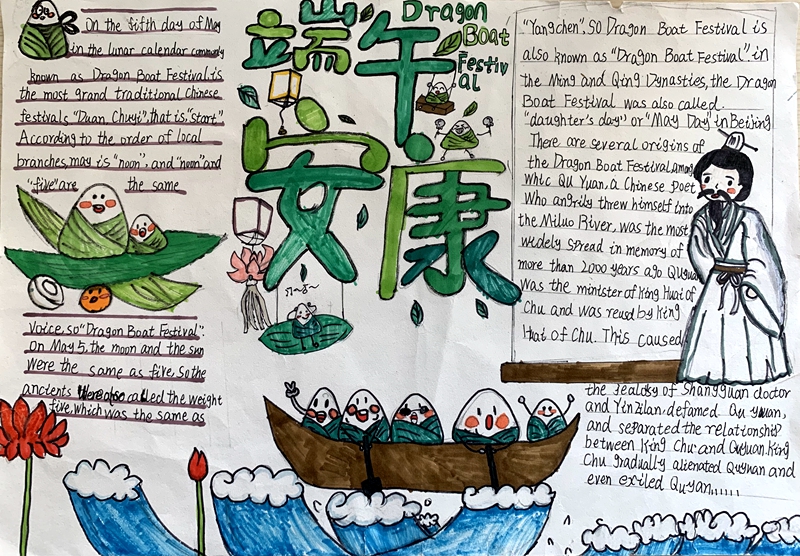 On the fifth day of May
in the lunar calendar commonly
known as Dragon Boat Festival.is
the most grand traditional Chinese
festivals "Duan Chuyi", that is, "start"
According to the order of local
branches, may is "noon", and "noon" and
"five" are the same
Voice, so "Dragon Boat Festival".
On May 5, the moon and the sun
were the same as five, so the
ancients were also called the weight
five, which was the same as
端午
安康
Dragon
Boat
Festiv
al
"Yangchen", SO Dragon Boat Festival is
also known as "Dragon Boat Festival". in
the Ming and Qing Dynasties, the Dragon
Boat Festival was also called.
"daughter's day" or "May Day" in Beijing
There are several origins of
the Dragon Boat Festival, among
whic Qu Yuan, a Chinese poet
who angrily threw himself into
the Miluo River, was the most
widely spread in memory of
more than 2000 years ago Quyuan
was the minister of King Huai of
Chu and was reused by King
Huai of Chu. This caused
the jealousy of Shangguan doctor
and Yinzilan, defamed Qu yuan,
and separated the relationship
between King Chu and Quyuan. King
Chu gradually alienated Quyuan and
even exiled Quyan......